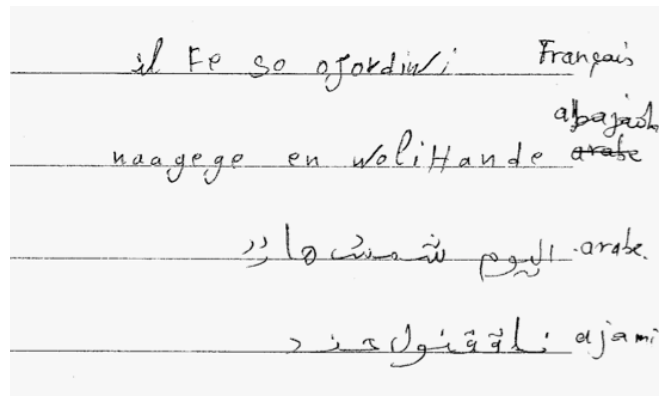 il Fe so ojordiwi Français
abajada
naagege en woliHande arabe
اليوم شمش هارر arabe.
ajami